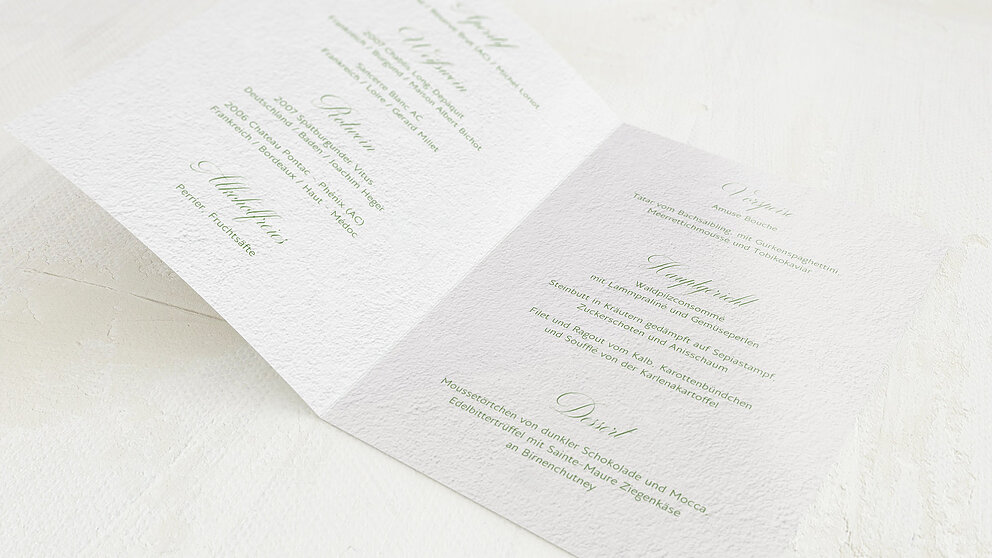 Aperitif
(AC) / Michel Loriot
Weißwein
2007 Chablis, Long-Depaquit
Frankreich / Burgund / Maison Albert Bichot
Sancerre Blanc AC
Frankreich / Loire / Gerard Millet
Rotwein
2007 Spätburgunder Vitus
Deutschland / Baden / Joachim Heger
2006 Château Pontac - Phénix (AC)
Frankreich / Bordeaux / Haut - Médoc
Alkoholfreies
Perrier, Fruchtsäfte
Vorspeise
Amuse Bouche
Tatar vom Bachsaibling, mit Gurkenspaghettini
Meerrettichmousse und Tobikokaviar
Hauptgericht
Waldpilzconsommé
mit Lammpraliné und Gemüseperlen
Steinbutt in Kräutern gedämpft auf Sepiastampf,
Zuckerschoten und Anisschaum
Filet und Ragout vom Kalb, Karottenbündchen
und Soufflé von der Karlenakartoffel
Dessert
Moussetörtchen von dunkler Schokolade und Mocca,
Edelbittertrüffel mit Sainte-Maure Ziegenkäse
an Birnenchutney